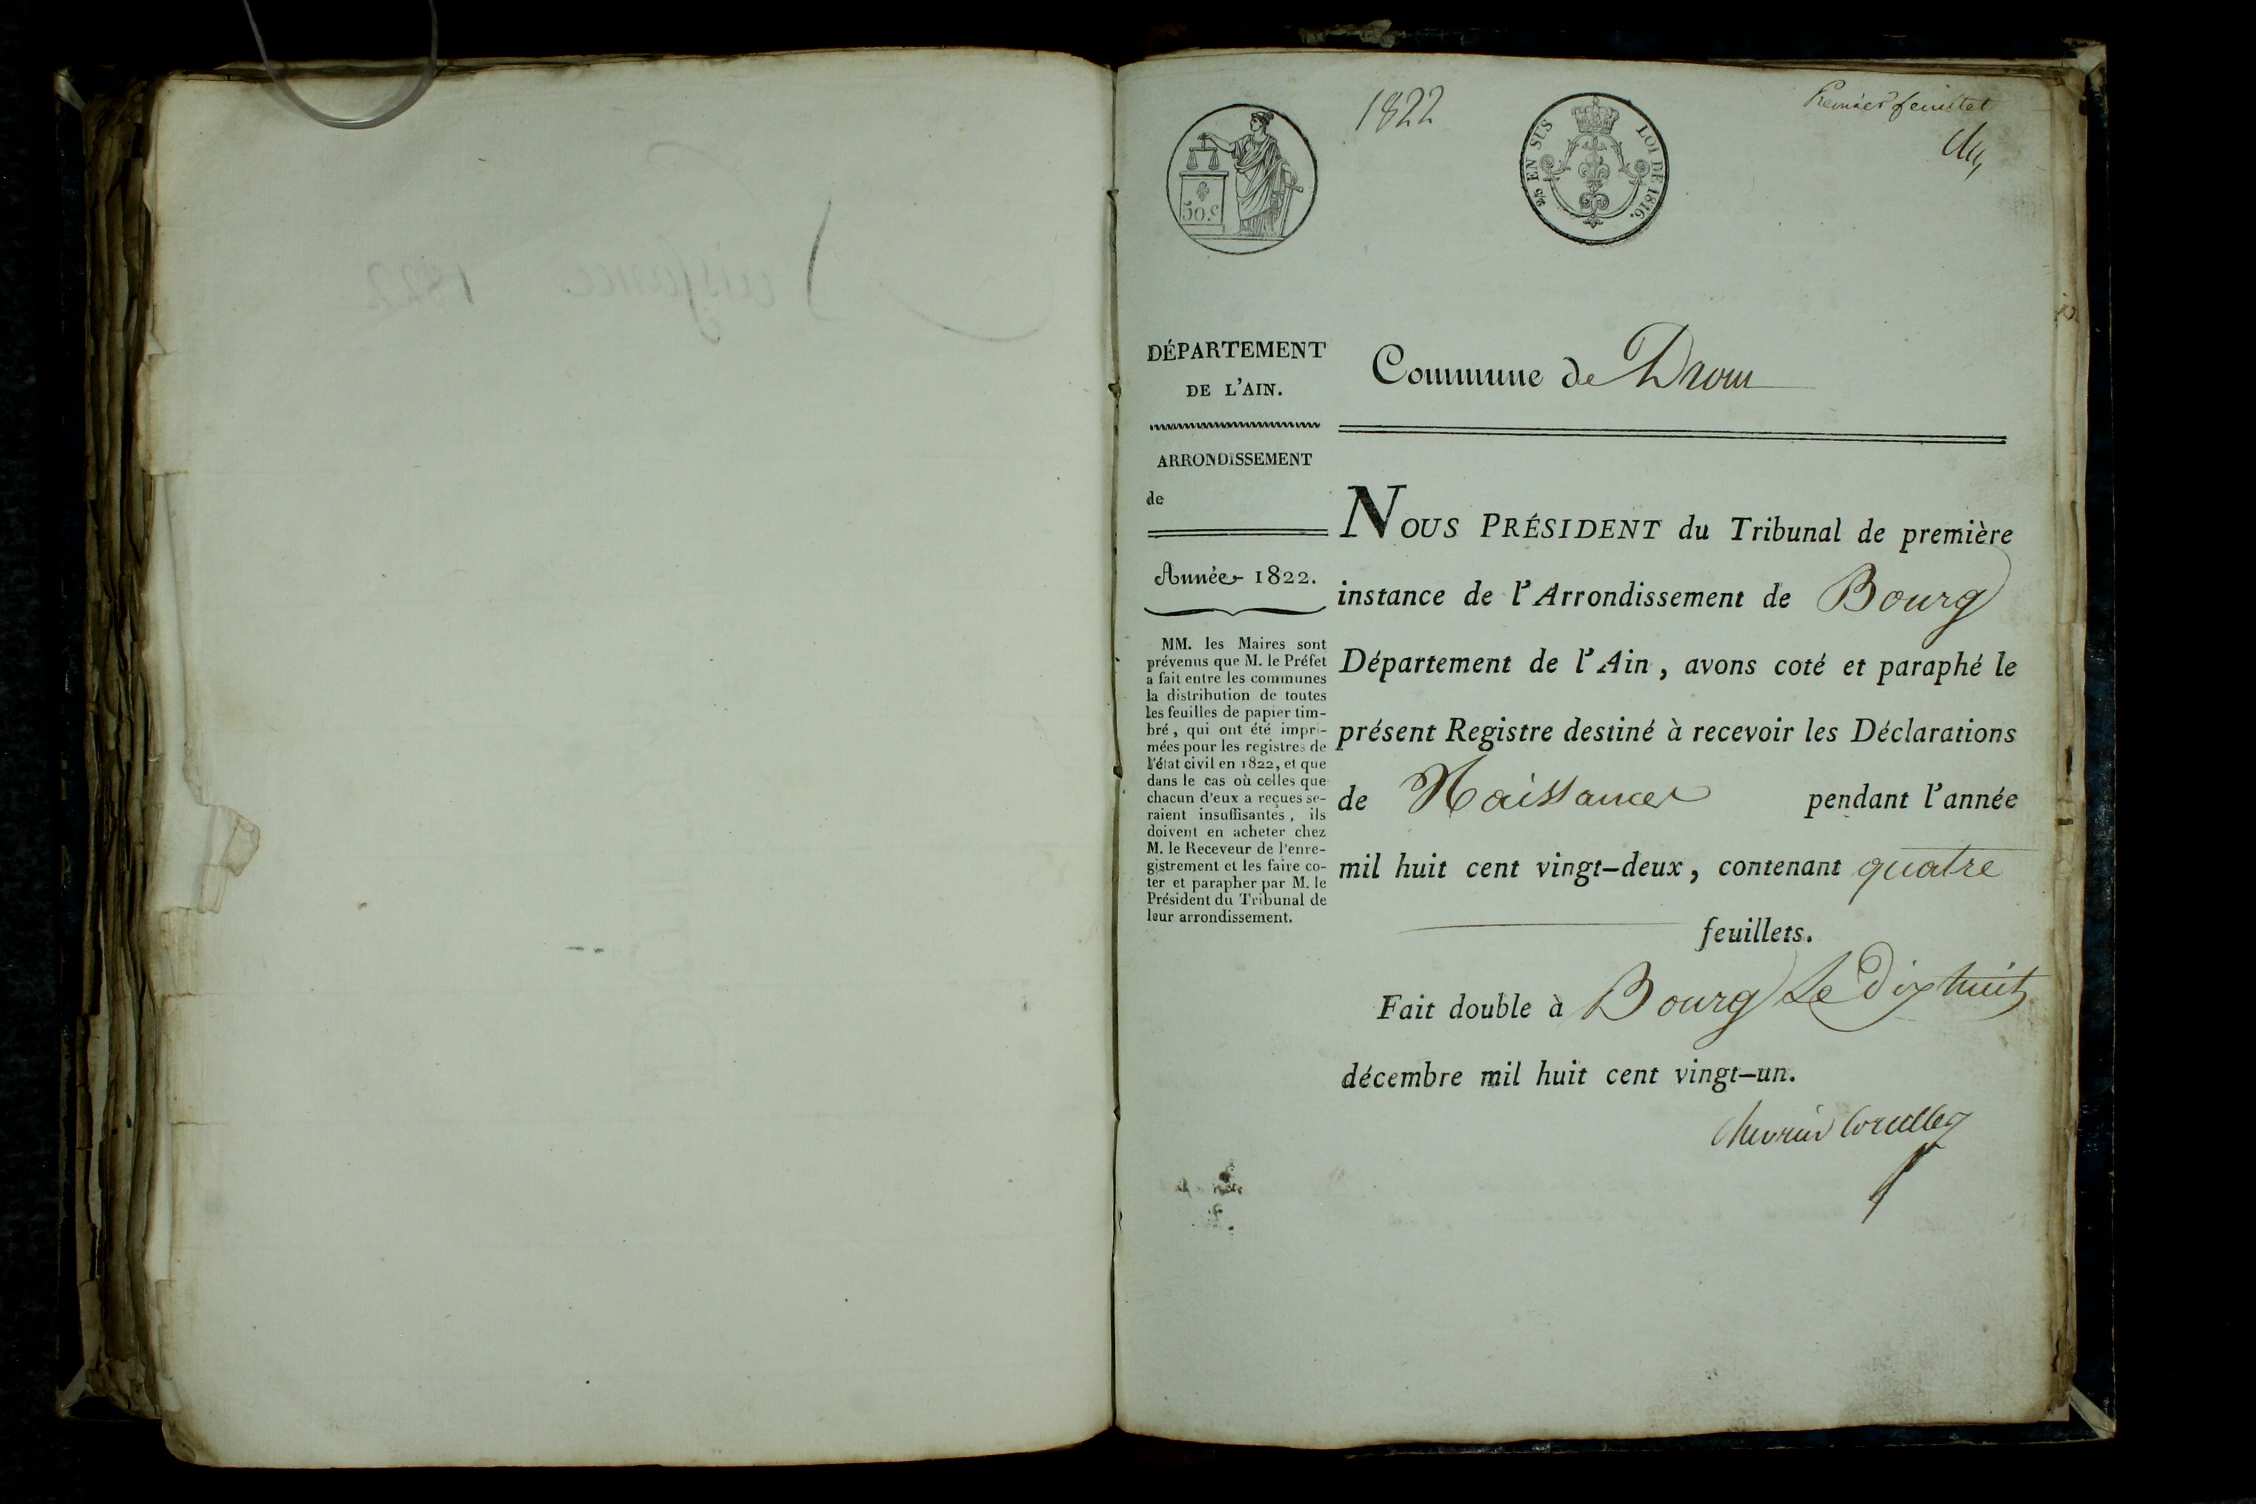 1822
Premier feuillet
50 c.
2/5 EN SUS
LOI DE 1816.
Naissance 1822
DÉPARTEMENT
DE L'AIN.
ARRONDISSEMENT
de
Année 1822.
MM. les Maires sont
prévenus que M. le Préfet
a fait entre les communes
la distribution de toutes
les feuilles de papier tim-
bré, qui ont été impri-
mées pour les registres de
l'état civil en 1822, et que
dans le cas où celles que
chacun d'eux a reçues se-
raient insuffisantes, ils
doivent en acheter chez
M. le Receveur de l'enre-
gistrement et les faire co-
ter et parapher par M. le
Président du Tribunal de
leur arrondissement.
Commune de Drom
NOUS PRÉSIDENT du Tribunal de première
instance de l'Arrondissement de Bourg
Département de l'Ain, avons coté et paraphé le
présent Registre destiné à recevoir les Déclarations
de Naissances pendant l'année
mil huit cent vingt-deux, contenant quatre
feuillets.
Fait double à Bourg Le Dix huit
décembre mil huit cent vingt-un.